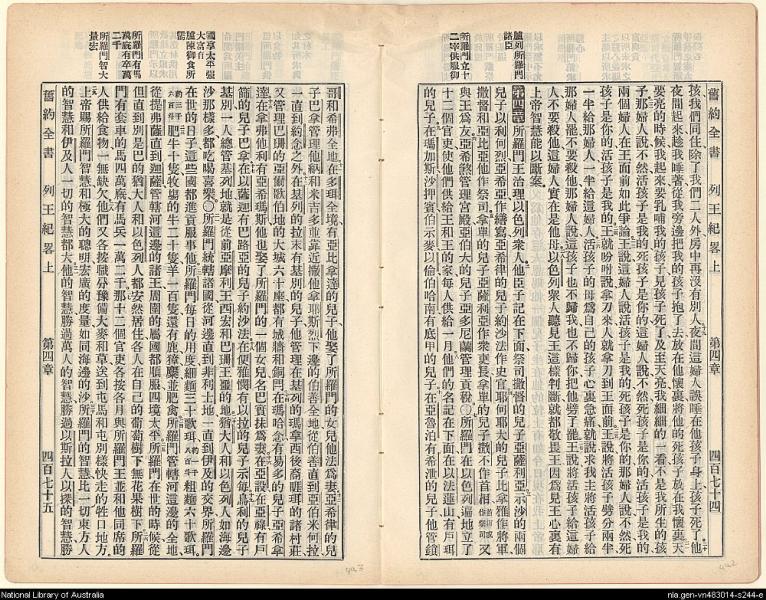 臚列所羅門諸臣
所羅門立十二宰供服御
舊約全書　列王紀畧上　第四章　四百七十四
孩我們同住除了我們二人外房中再沒有別人夜間這婦人誤睡在他孩子身上孩子死了他
夜間起來趁我睡著從我旁邊把我的孩子抱了去放在他懷裏將他的死孩子放在我懷裏天
要亮的時候我起來要乳哺我的孩子見孩子死了及至天亮我細細的一看不是我所生的孩
子那婦人說不然活孩子是我的死孩子是你的這婦人說不然死孩子是你的活孩子是我的
兩個婦人在王面前如此爭論王說這婦人說活孩子是我的死孩子是你的那婦人說不然死
孩子是你的活孩子是我的王就吩咐說拿刀來人就拿刀到王面前王說將活孩子劈分兩半
一半給那婦人一半給這婦人活孩子的母爲自己的孩子心裏急痛就說求我主將活孩子給
那婦人罷不要殺他那婦人說這孩子也不歸我也不歸你把他劈了罷王說將活孩子給這婦
人不要殺他這婦人實在是他母以色列衆人聽見王這樣判斷就都敬畏王因爲見王心裏有
上帝智慧能以斷案
第四章 所羅門王治理以色列衆人他臣子記在下面祭司撒督的兒子亞薩利亞示沙的兩個
兒子以利何烈亞希亞作繕寫亞希律的兒子約沙法作史官耶何耶大的兒子比拿雅作將軍
撒督和亞比亞他作祭司拿單的兒子亞薩利亞作衆吏長拿單的兒子撒不作首相又
與王爲友亞希煞管理宮殿亞伯大的兒子亞多尼蘭管理貢稅○所羅門在以色列遍地立了
十二個官吏使他們供給王和王的家每人供給一月他們的名記在下面在以法蓮山有戶珥
的兒子在瑪加斯沙押賓伯示麥以倫伯哈南有底甲的兒子在亞魯泊有希洒的兒子他管鎖
國享太平強大富有
臚陳御食所需
所羅門有馬萬底有卒萬二千
所羅門智大量宏
哥和希弗全地在多珥全境有亞比拿達的兒子他娶了所羅門的女兒他法爲妻亞希律的兒
子巴拿管理他納和米吉多並靠近撒他拿耶斯烈下邊的伯善全地從伯善直到亞伯米何拉
一直到約念之外在基列的拉末有基別的兒子他管理在基列的瑪拿西後裔睚珥的諸村莊
又管理巴珊的亞爾歌伯地的大城六十座都有城牆和銅閂在瑪哈念有易多的兒子亞希拿
達在拿弗他利有亞希瑪斯他也娶了所羅門的一個女兒名巴實抹爲妻在亞設在亞祿有戶
篩的兒子巴拿在以薩迦有巴路亞的兒子約沙法在便雅憫有以拉的兒子示每烏利的兒子
基別一人總管基列地就是從前亞摩利王西宏和巴珊王噩的地猶大人和以色列人如海邊
沙那樣多都吃喝喜樂○所羅門統轄諸國從河邊直到非利士地一直到伊及的交界所羅門
在世的日子這些國都進貢服事他所羅門每日的用度細麵三十歌珥粗麵六十歌珥
肥牛十隻牧場的牛二十隻羊一百隻還有鹿獐麇並肥禽所羅門管轄河這邊的全地
從提弗薩直到迦薩管轄河這邊的諸王周圍的屬國都順服四境太平所羅門在世的時候從
但直到別是巴的猶大人和以色列人都安然居住各人在自己的葡萄樹下無花果樹下所羅
門有套車的馬四萬廄有馬兵一萬二千那十二個官吏各按各月與所羅門王並和他同席的
人供給食物一無缺欠他們又各按職分豫備大麥和草送到屯馬和屯別樣快走的牲口地方
上帝賜所羅門智慧和極大的聰明宏廣的度量如同海邊的沙所羅門的智慧比一切東方人
的智慧和伊及人一切的智慧都大他的智慧勝過萬人的智慧勝過以斯拉人以探的智慧勝
舊約全書　列王紀畧上　第四章　四百七十五
National Library of Australia
nla.gen-vn483014-s244-e